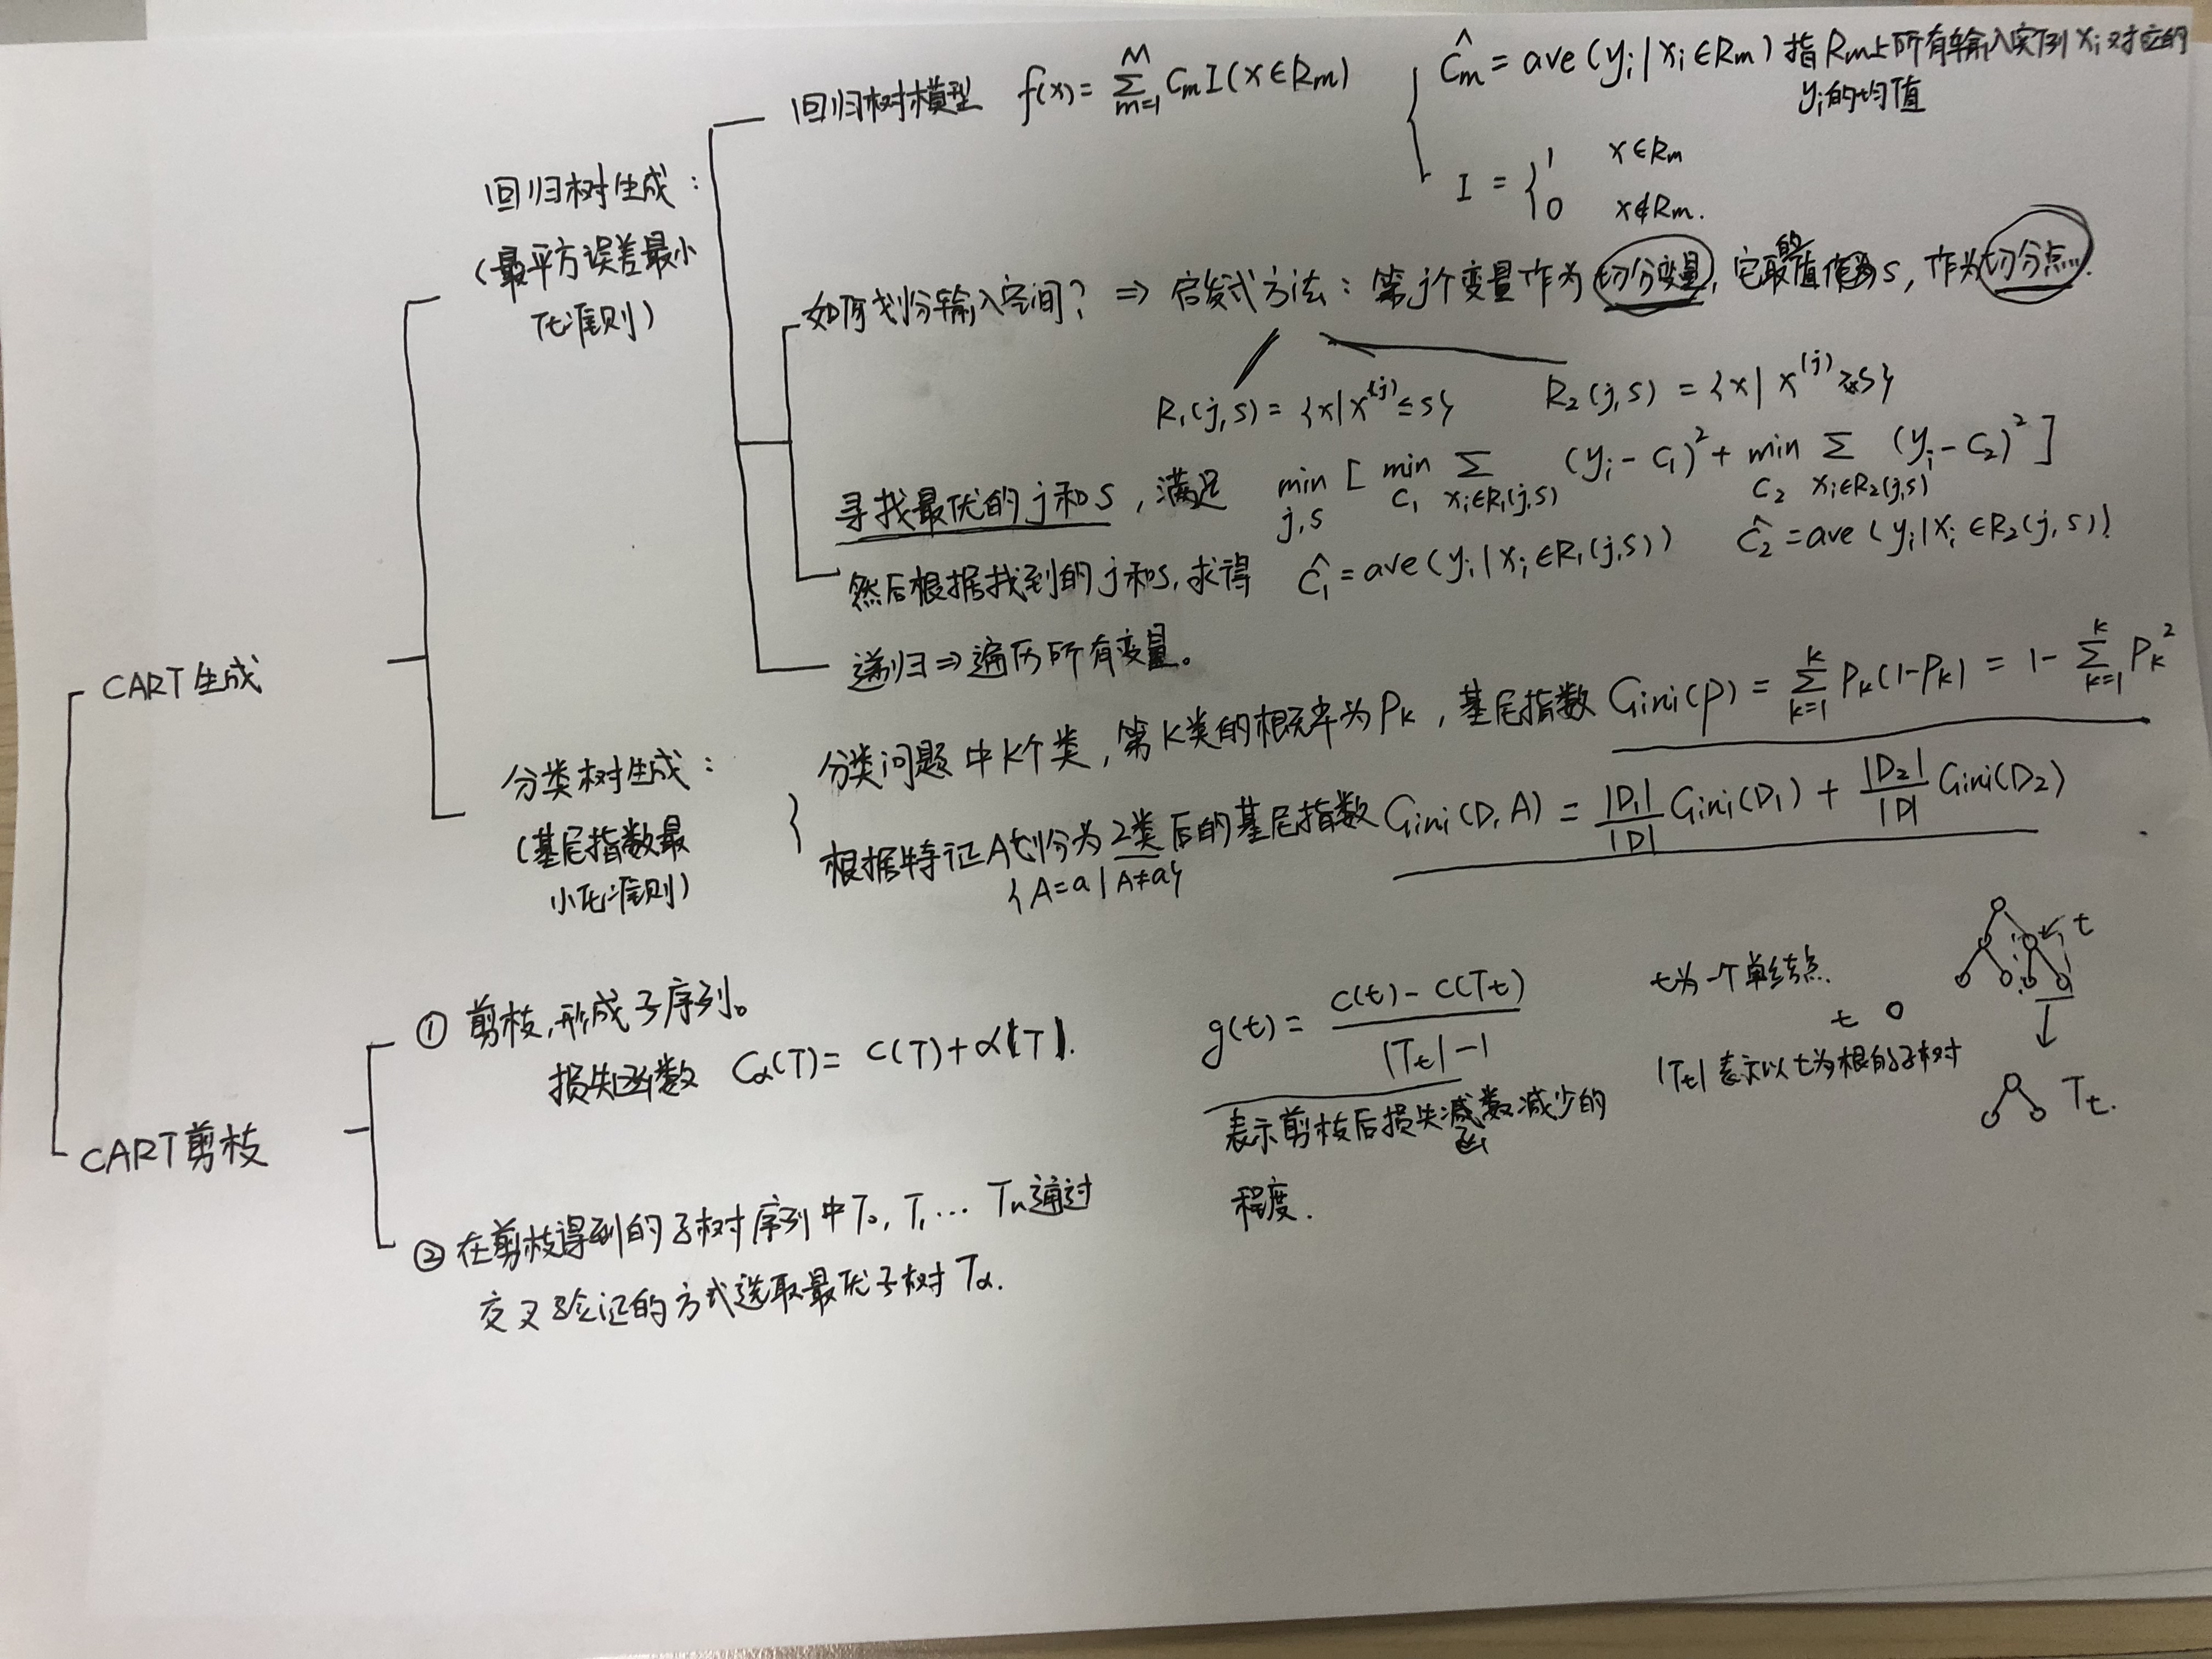 回归树模型 f(x) = Σ_{m=1}^{M} C_m I(x∈R_m)
Ĉ_m = ave(y_i | x_i∈R_m) 指R_m上所有输入实例x_i对应的
y_i的均值
I = { 1 x∈R_m
0 x∉R_m.
回归树生成:
(最平方误差最小
化准则)
如何划分输入空间? ⇒ 启发式方法: 第j个变量作为切分变量, 它取的值s, 作为切分点.
R_1(j,s) = {x|x^(j) ≤ s} R_2(j,s) = {x|x^(j) > s}
寻找最优的j和s, 满足 min_{j,s} [ min_{C_1} Σ_{x_i∈R_1(j,s)} (y_i - C_1)² + min_{C_2} Σ_{x_i∈R_2(j,s)} (y_i - C_2)² ]
然后根据找到的j和s, 求得 Ĉ_1 = ave(y_i | x_i∈R_1(j,s)) Ĉ_2 = ave(y_i | x_i∈R_2(j,s))
递归 ⇒ 遍历所有变量。
CART生成
分类树生成:
(基尼指数最
小化准则)
分类问题中K个类, 第K类的概率为P_K, 基尼指数 Gini(p) = Σ_{k=1}^{K} P_k(1-P_k) = 1 - Σ_{k=1}^{K} P_k²
根据特征A划分为2类后的基尼指数 Gini(D, A) = |D_1|/|D| Gini(D_1) + |D_2|/|D| Gini(D_2)
{A=a | A≠a}
CART剪枝
① 剪枝,形成子序列。
损失函数 C_α(T) = C(T) + α|T|.
g(t) = (C(t) - C(T_t)) / (|T_t| - 1)
表示剪枝后损失减数减少的
函
程度.
t为一个单结点.
t
|T_t| 表示以t为根的子树
t
T_t.
② 在剪枝得到的子树序列中T_0, T_1 … T_n通过
交叉验证的方式选取最优子树T_α.